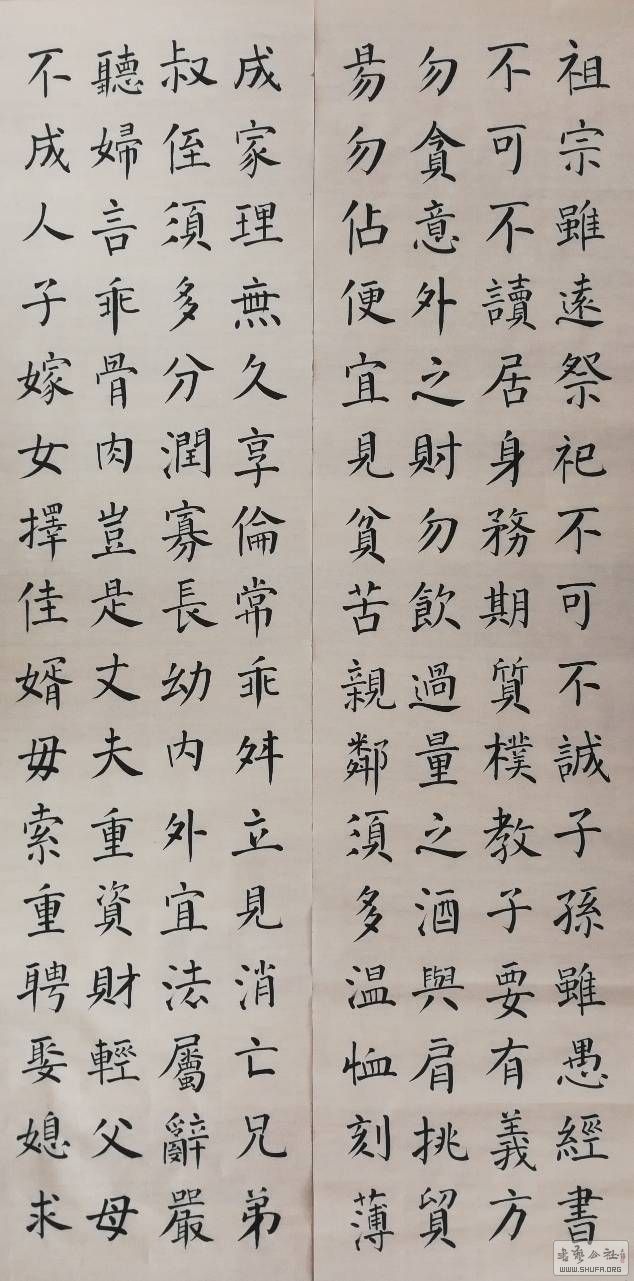 祖宗雖遠祭祀不可不誠子孫雖愚經書
不可不讀居身務期質樸教子要有義方
勿貪意外之財勿飲過量之酒與肩挑貿
昜勿佔便宜見貧苦親鄰須多温恤刻薄
成家理無久享倫常乖舛立見消亡兄弟
叔侄須多分潤寡長幼内外宜法屬辭嚴
聽婦言乖骨肉豈是丈夫重資財輕父母
不成人子嫁女擇佳婿毋索重聘娶媳求
WWW.SHUFA.ORG